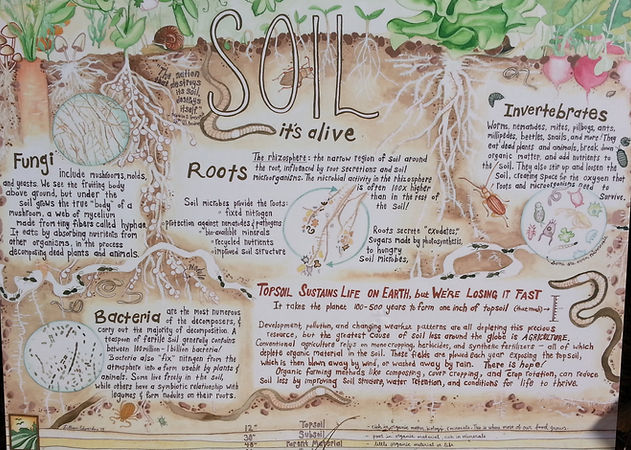 SOIL
it's alive
"The nation
that destroys
its soil,
destroys
itself."
Fungi
include mushrooms, molds,
and yeasts. We see the fruiting body
above ground, but under the
soil grows the true "body" of a
mushroom, a web of mycelium
made from tiny fibers called hyphae.
It eats by absorbing nutrients from
other organisms, in the process
decomposing dead plants and animals.
Roots
The rhizosphere: the narrow region of soil around
the root, influenced by root secretions and soil
microorganisms. The microbial activity in the rhizosphere
is often 100x higher
than in the rest of
the soil!
Soil microbes provide the roots:
• fixed nitrogen
protection against nematodes & pathogens
• bio-available minerals
• recycled nutrients
• improved soil structure
Roots secrete "exudates,"
sugars made by photosynthesis,
to hungry
soil microbes.
Invertebrates
Worms, nematodes, mites, pillbugs, ants,
millipedes, beetles, snails, and more! They
eat dead plants and animals, break down
organic matter, and add nutrients to
the soil. They also stir up and loosen the
soil, creating space for the oxygen that
roots and microorganisms need to
survive.
Bacteria
are the most numerous
of the decomposers, &
carry out the majority of decomposition. A
teaspoon of fertile soil generally contains
between 100 million - 1 billion bacteria!
Bacteria also "fix" nitrogen from the
atmosphere into a form useable by plants &
animals. Some live freely in the soil,
while others have a symbiotic relationship with
legumes & form nodules on their roots.
TOPSOIL SUSTAINS LIFE ON EARTH, but WE'RE LOSING IT FAST
It takes the planet 100-500 years to form one inch of topsoil (that much)→
Development, pollution, and changing weather patterns are all depleting this precious
resource, but the greatest cause of soil loss around the globe is AGRICULTURE.
Conventional agriculture relies on mono cropping, herbicides, and synthetic fertilizer - all of which
deplete organic material in the soil. These fields are plowed each year exposing the topsoil,
which is then blown away by wind, or washed away by rain. There is hope!
Organic farming methods like composting, cover cropping, and crop rotation, can reduce
soil loss by improving soil structure, water retention, and conditions for life to thrive.
12" Topsoil - rich in organic matter, biology, & minerals. This is where most of our food grows.
30" Subsoil - poor in organic material, rich in minerals
48" Parent Material - little organic material or life